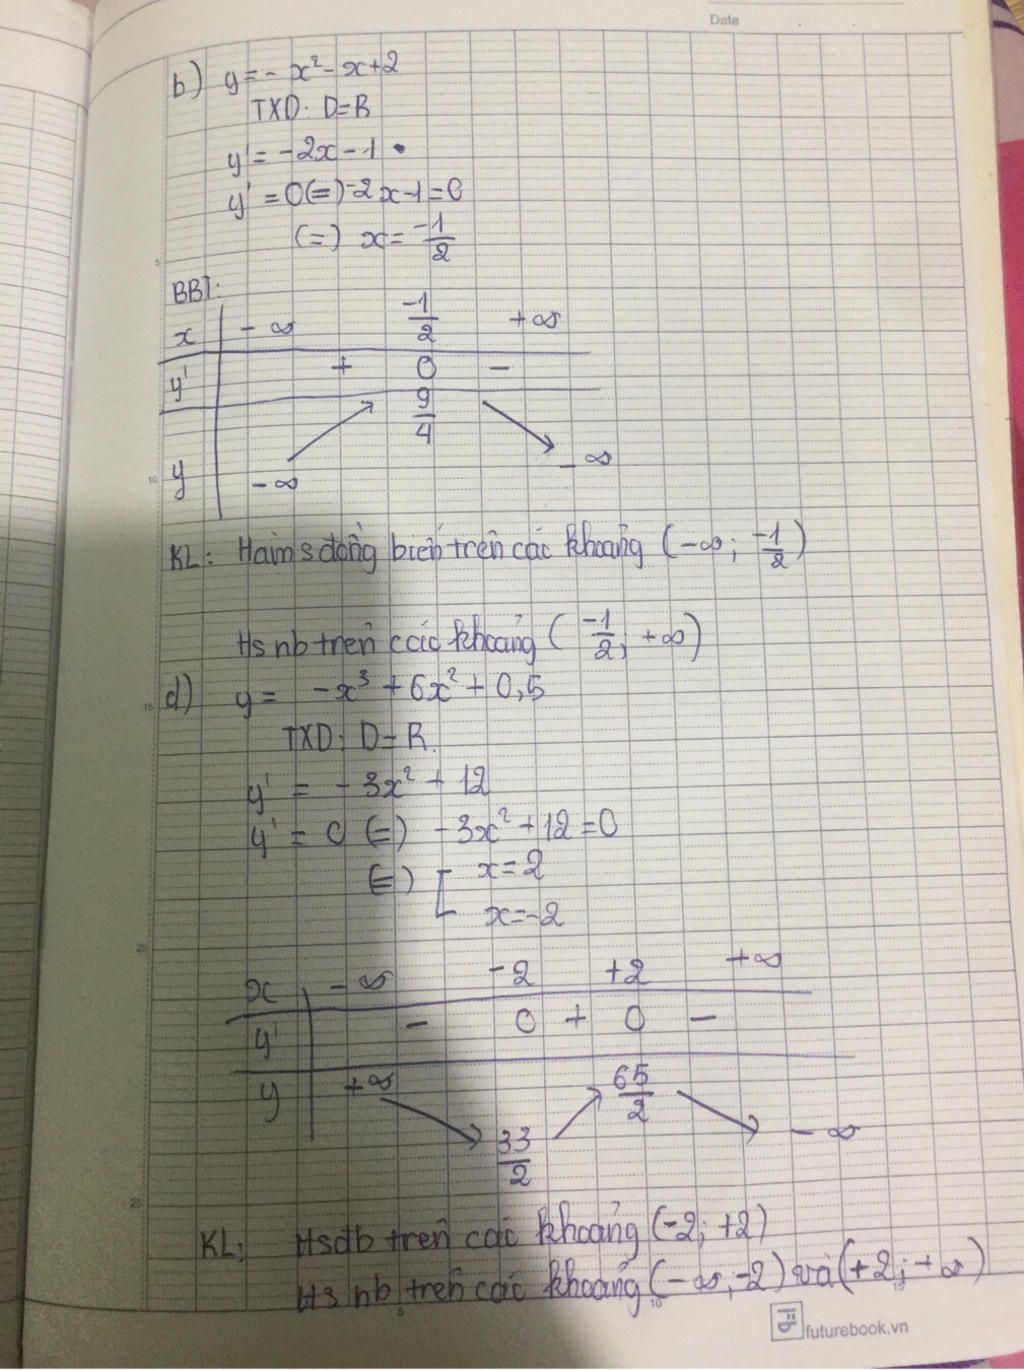 Date
b) y = - x² - x + 2
TXD. D=R
y' = -2x - 1 •
y' = 0 (=) -2x-1=0
(=) x = -1/2
BBT:
x -∞ -1/2 +∞
y' + 0 -
9/4
y -∞ -∞
KL: Hàm s đồng biến trên các khoảng (-∞; -1/2)
Hs nb trên các khoảng (-1/2; +∞)
d) y = -x³ + 6x² + 0,5
TXD: D=R.
y' = -3x² + 12
y' = 0 (=) -3x² + 12 = 0
(=) [ x=2
x=-2
x -∞ -2 +2 +∞
y' - 0 + 0 -
y +∞ 65/2
33/2 -∞
KL: Hsđb trên các khoảng (-2; +2)
Hs nb trên các khoảng (-∞; -2) và (+2; +∞)
5 10 15 20 25
5 10 15
futurebook.vn